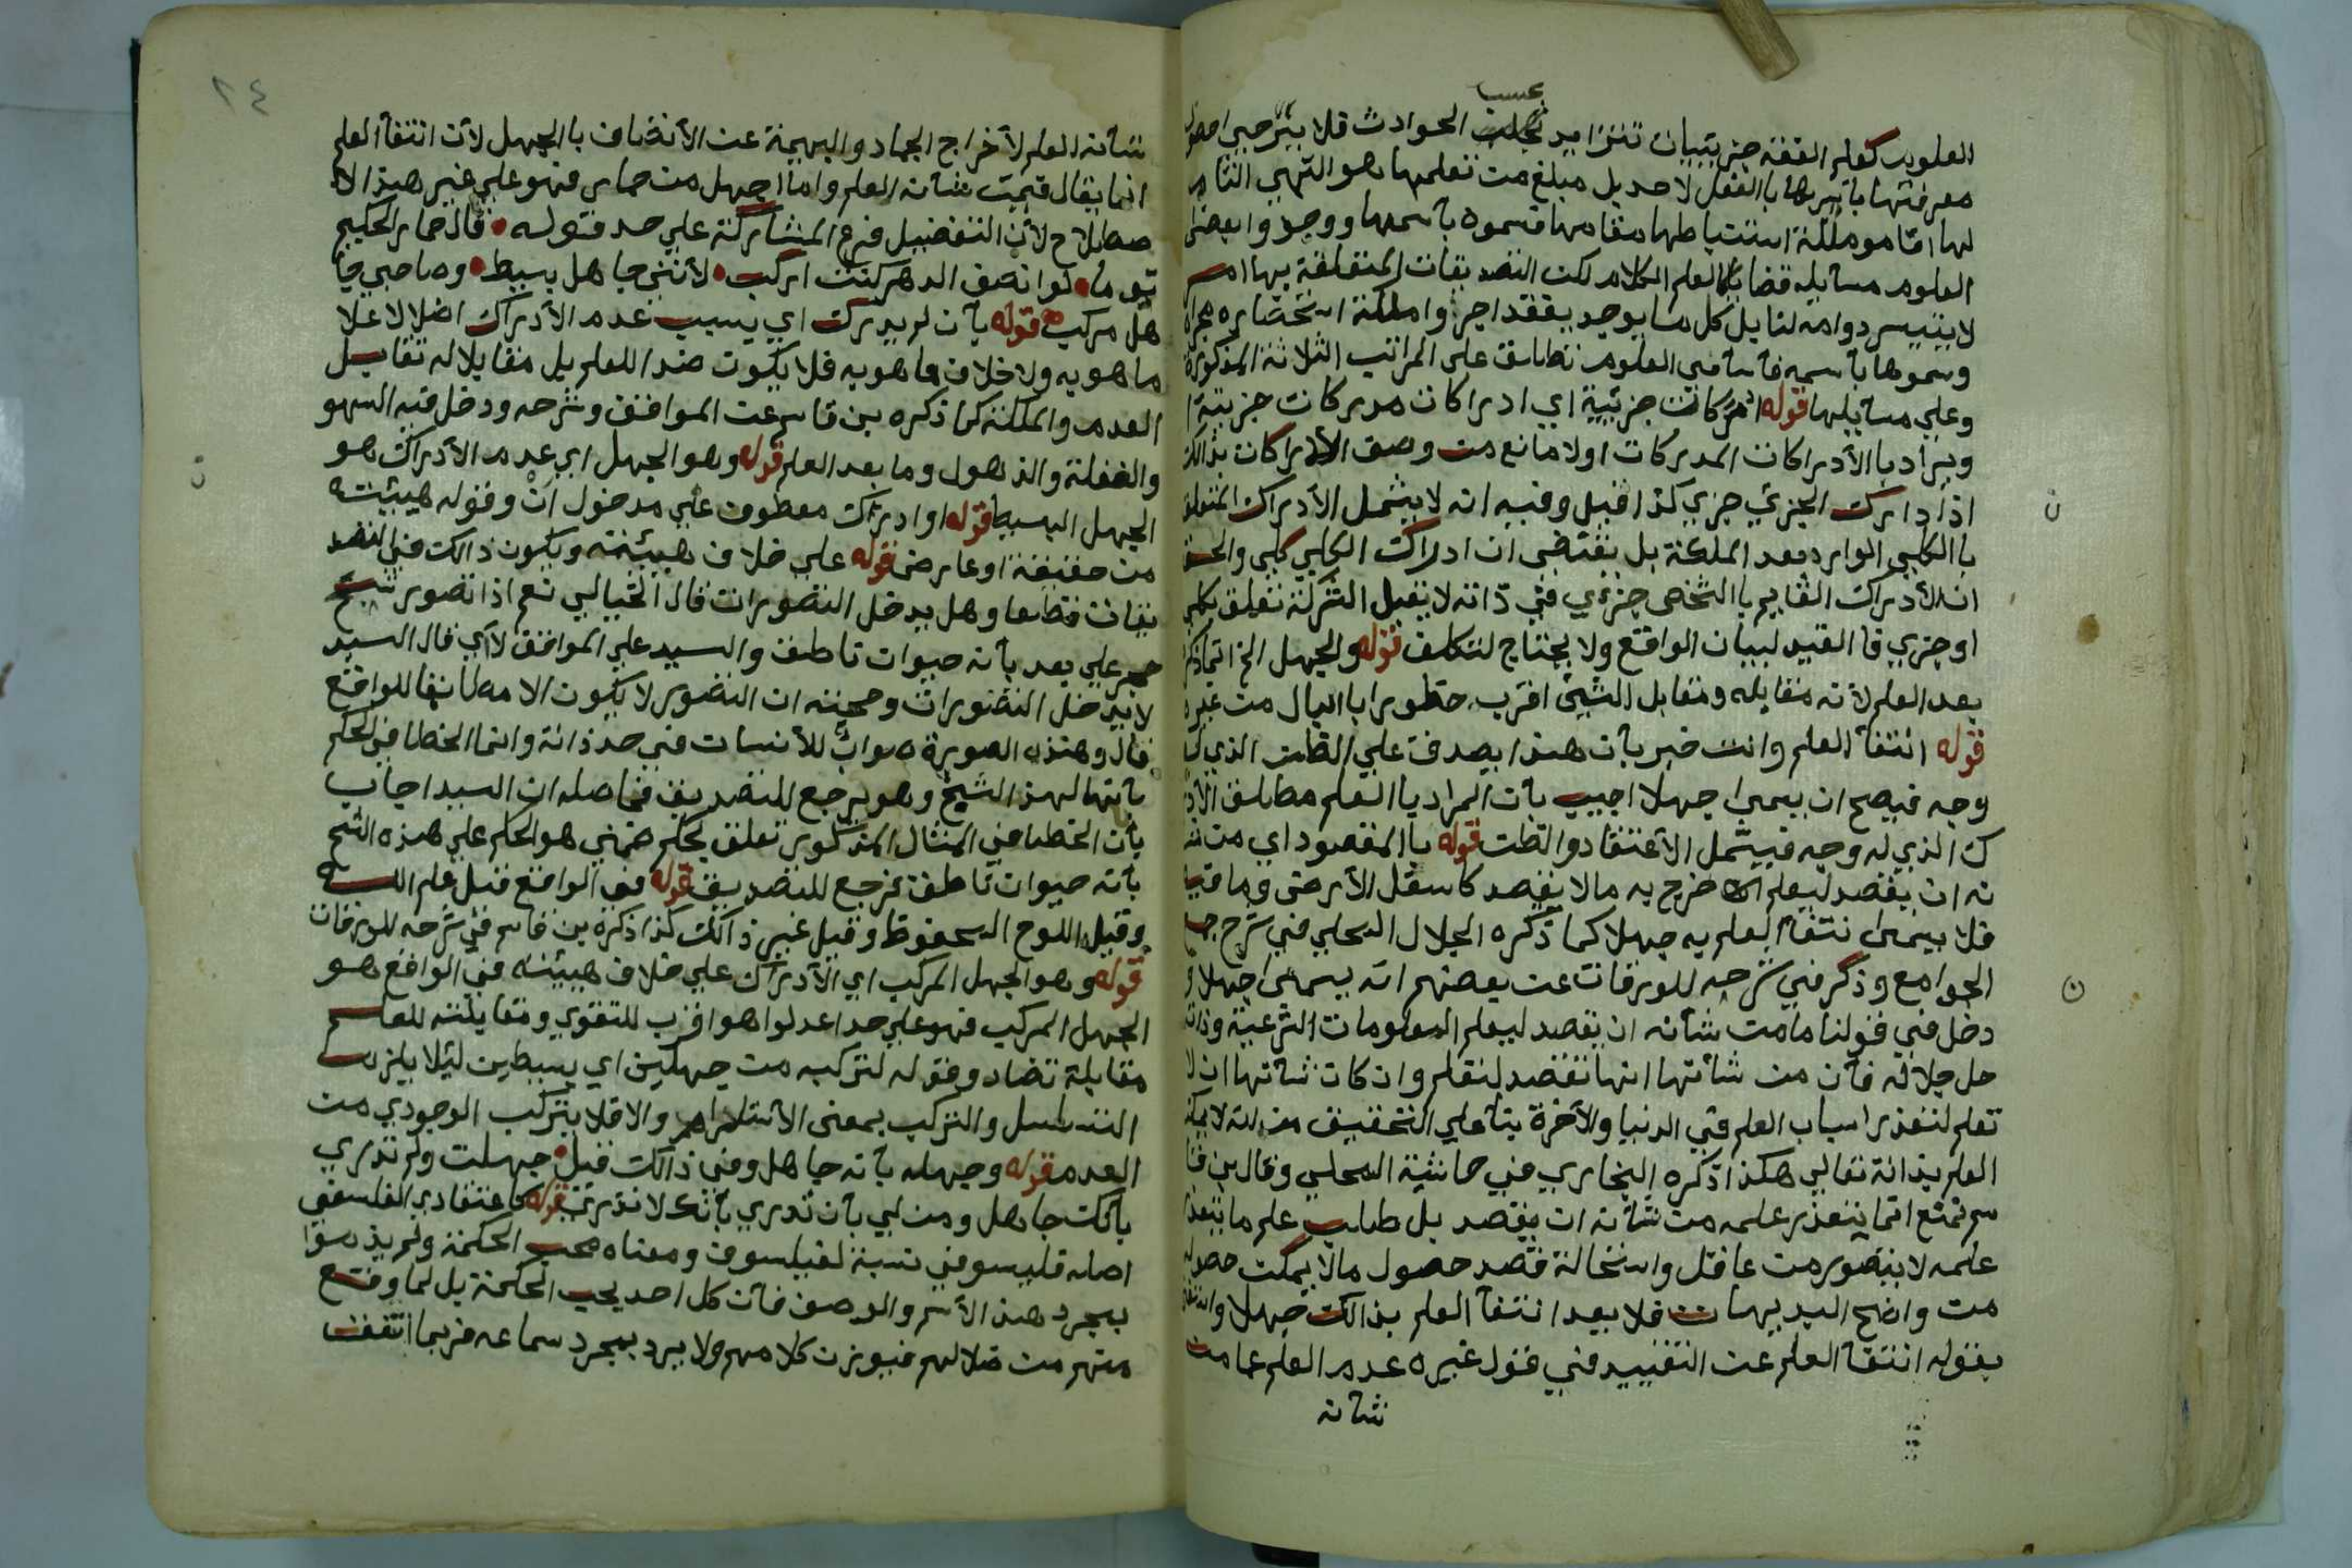 بحسب
العلوم كعلم الفقه جزيئيات تتزايد الحوادث فلا يترجى
معرفتها باسرها باالفعل لاحد بل مبلغ من تعلمها هو التهي التام
لها اقامو ملكة استنباطها مقامها فسموه باسمها ووجدوا بعض
العلوم مسايله قضايا كالعلم الكلام لكن التصديقات المتعلقة بها امر
لا يتيسر دوامه لنا بل كل ما يوجد يفقد اجروا ملكة استحضاره مجراه
وسموها باسمه فاسامي العلوم تطلق على المراتب الثلاثة المذكورة
وعلي مسايلها قوله ادراكات جزئية اي ادراكات مدركات جزيية
ويراد باالأدراكات المدركات اولا مانع من وصف الأدراكات بذالك
اذ ادارك الجزئي جزي كذا قيل وفيه انه لا يشمل الأدراك المتعلق
باالكلي الوارد بعد الملكة بل يقتضي ان ادراك الكلي كلي والحق
ان الأدراك القايم باالشخص جزءي في ذاته لا يقبل الشركة تعلق بكلي
اوجزي فا القيد لبيان الواقع ولا يحتاج لتكلف قوله والجهل الخ انما ذكره
بعد العلم لأنه مقابله ومقابل الشيئ اقرب خطورا باالبال من غيره
قوله انتفآ العلم وانت خبر بأن هذا يصدق علي الظان الذي له
وجه فيصح ان يسمى جهلا اجيب بأن المراد باالعلم مطلق الأدرا
ك الذي له وجه فيشمل الأعتقاد والظن قوله باالمقصود اي من شا
نه ان يقصد ليعلم خرج به مالا يقصد كاسفل الأرض وما فيها
فلا يسمى انتفآ العلم به جهلا كما ذكره الجلال المحلي في شرح جمع
الجوامع وذكر في شرحه للورقات عن بعضهم انه يسمى جهلا و
دخل في قولنا مامن شأنه ان يقصد ليعلم المعلومات الشرعية وذات
حل جلاله فأن من شأنها انها تقصد لتعلم وان كان شأنها ان لا
تعلم لتعذر اسباب العلم في الدنيا والأخرة بنآ علي التحقيق من انه لا يمكن
العلم بذاته تعالي هكذا ذكره البخاري في حاشية المحلي وقال بن قا
سم تمنع انما يتعذر علمه من شأنه ان يقصد بل طلب علم ما يتعذر
علمه لا يتصور من عاقل واستحالة قصد حصول مالا يمكن حصوله
من واضح البديهيات فلا يعد انتفآ العلم بذالك جهلا
بقوله انتفآ العلم عن التقييد في قول غيره عدم العلم عما من
شأنه
٢٤
شأنه العلم لأخراج الجماد والبهيمة عن الأتصاف باالجهل لأن انتفآ العلم
انما يقال فيمن شأنه العلم واما اجهل من حمار فهو علي غير هذا الا
صطلاح لأن التفضيل فرع المشاركة علي حد قوله قال حمار الحكيم
توما لو انصف الدهر كنت اركب لأنني جاهل بسيط وصاحبي جا
هل مركب قوله بأن لم يدرك اي بسبب عدم الأدراك اضلا لا علا
ما هو به ولا خلاف ما هو به فلا يكون ضدا للعلم بل مقابلا له تقابل
العدم والملكة كما ذكره بن قاسم عن المواقف وشرحه ودخل فيه السهو
والغفلة والذهول وما بعد العلم قوله وهو الجهل اي عدم الأدراك هو
الجهل البسيط قوله او ادراك معطوف علي مدخول ان وقوله هيئته
من حقيقة او عارض قوله علي خلاف هيئته ويكون ذالك في التصد
يقات قطعا وهل يدخل التصورات قال الخيالي نعم اذا تصور شبح
حجر علي بعد بأنه حيوان ناطق والسيد علي المواقف لا اي قال السيد
لا يدخل التصورات وحجته ان التصور لا يكون الا مطابقا للواقع
قال وهذه الصورة صواب للأنسان في حد ذاته وانما الخطا في الحكم
بأنها لهذا الشبح وهو يرجع للتصديق فحاصله ان السيد اجاب
بأن الخطا في المثال المذكور تعلق بحكم ضمني هو الحكم علي هذه الشبح
بأنه حيوان ناطق فرجع للتصديق قوله في الواقع قيل علم الله
وقيل اللوح المحفوظ وقيل غير ذالك كذا ذكره بن قاسم في شرحه للورقات
قوله وهو الجهل المركب اي الأدراك علي خلاف هيئته في الواقع هو
الجهل المركب فهو علي حد اعدلوا هو اقرب للتقوي ومقابلته للعلم
مقابلة تضاد وقوله لتركبه من جهلين اي بسيطين ليلا يلزم
التسلسل والتركب بمعنى الأستلزام والا فلا يتركب الوجودي من
العدم قوله وجهله بأنه جاهل وفي ذالك قيل جهلت ولم تدري
بأنك جاهل ومن لي بأن تدري بأنك لا تدري قوله كاعتقادي الفلسفي
اصله فليسوفي نسبة لفيلسوف ومعناه محب الحكمة ولم يذموا
بمجرد هذا الأسم والوصف فأن كل احد يحب الحكمة بل لما وقع
منهم من ضلالهم فيوزن كلامهم ولا يرد بمجرد سماعه فربما اتفقت